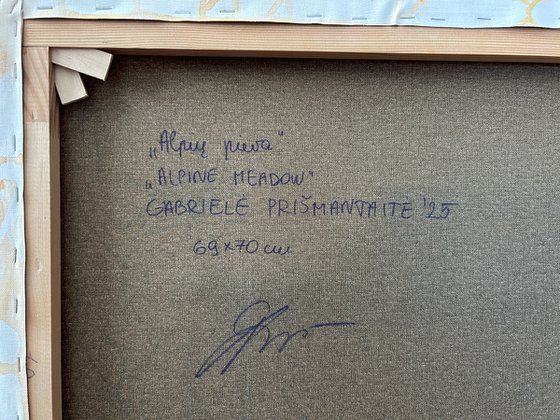 „Alpių pieva“
„ALPINE MEADOW“
GABRIELĖ PRIŠMANTAITĖ '25
69x70 cm